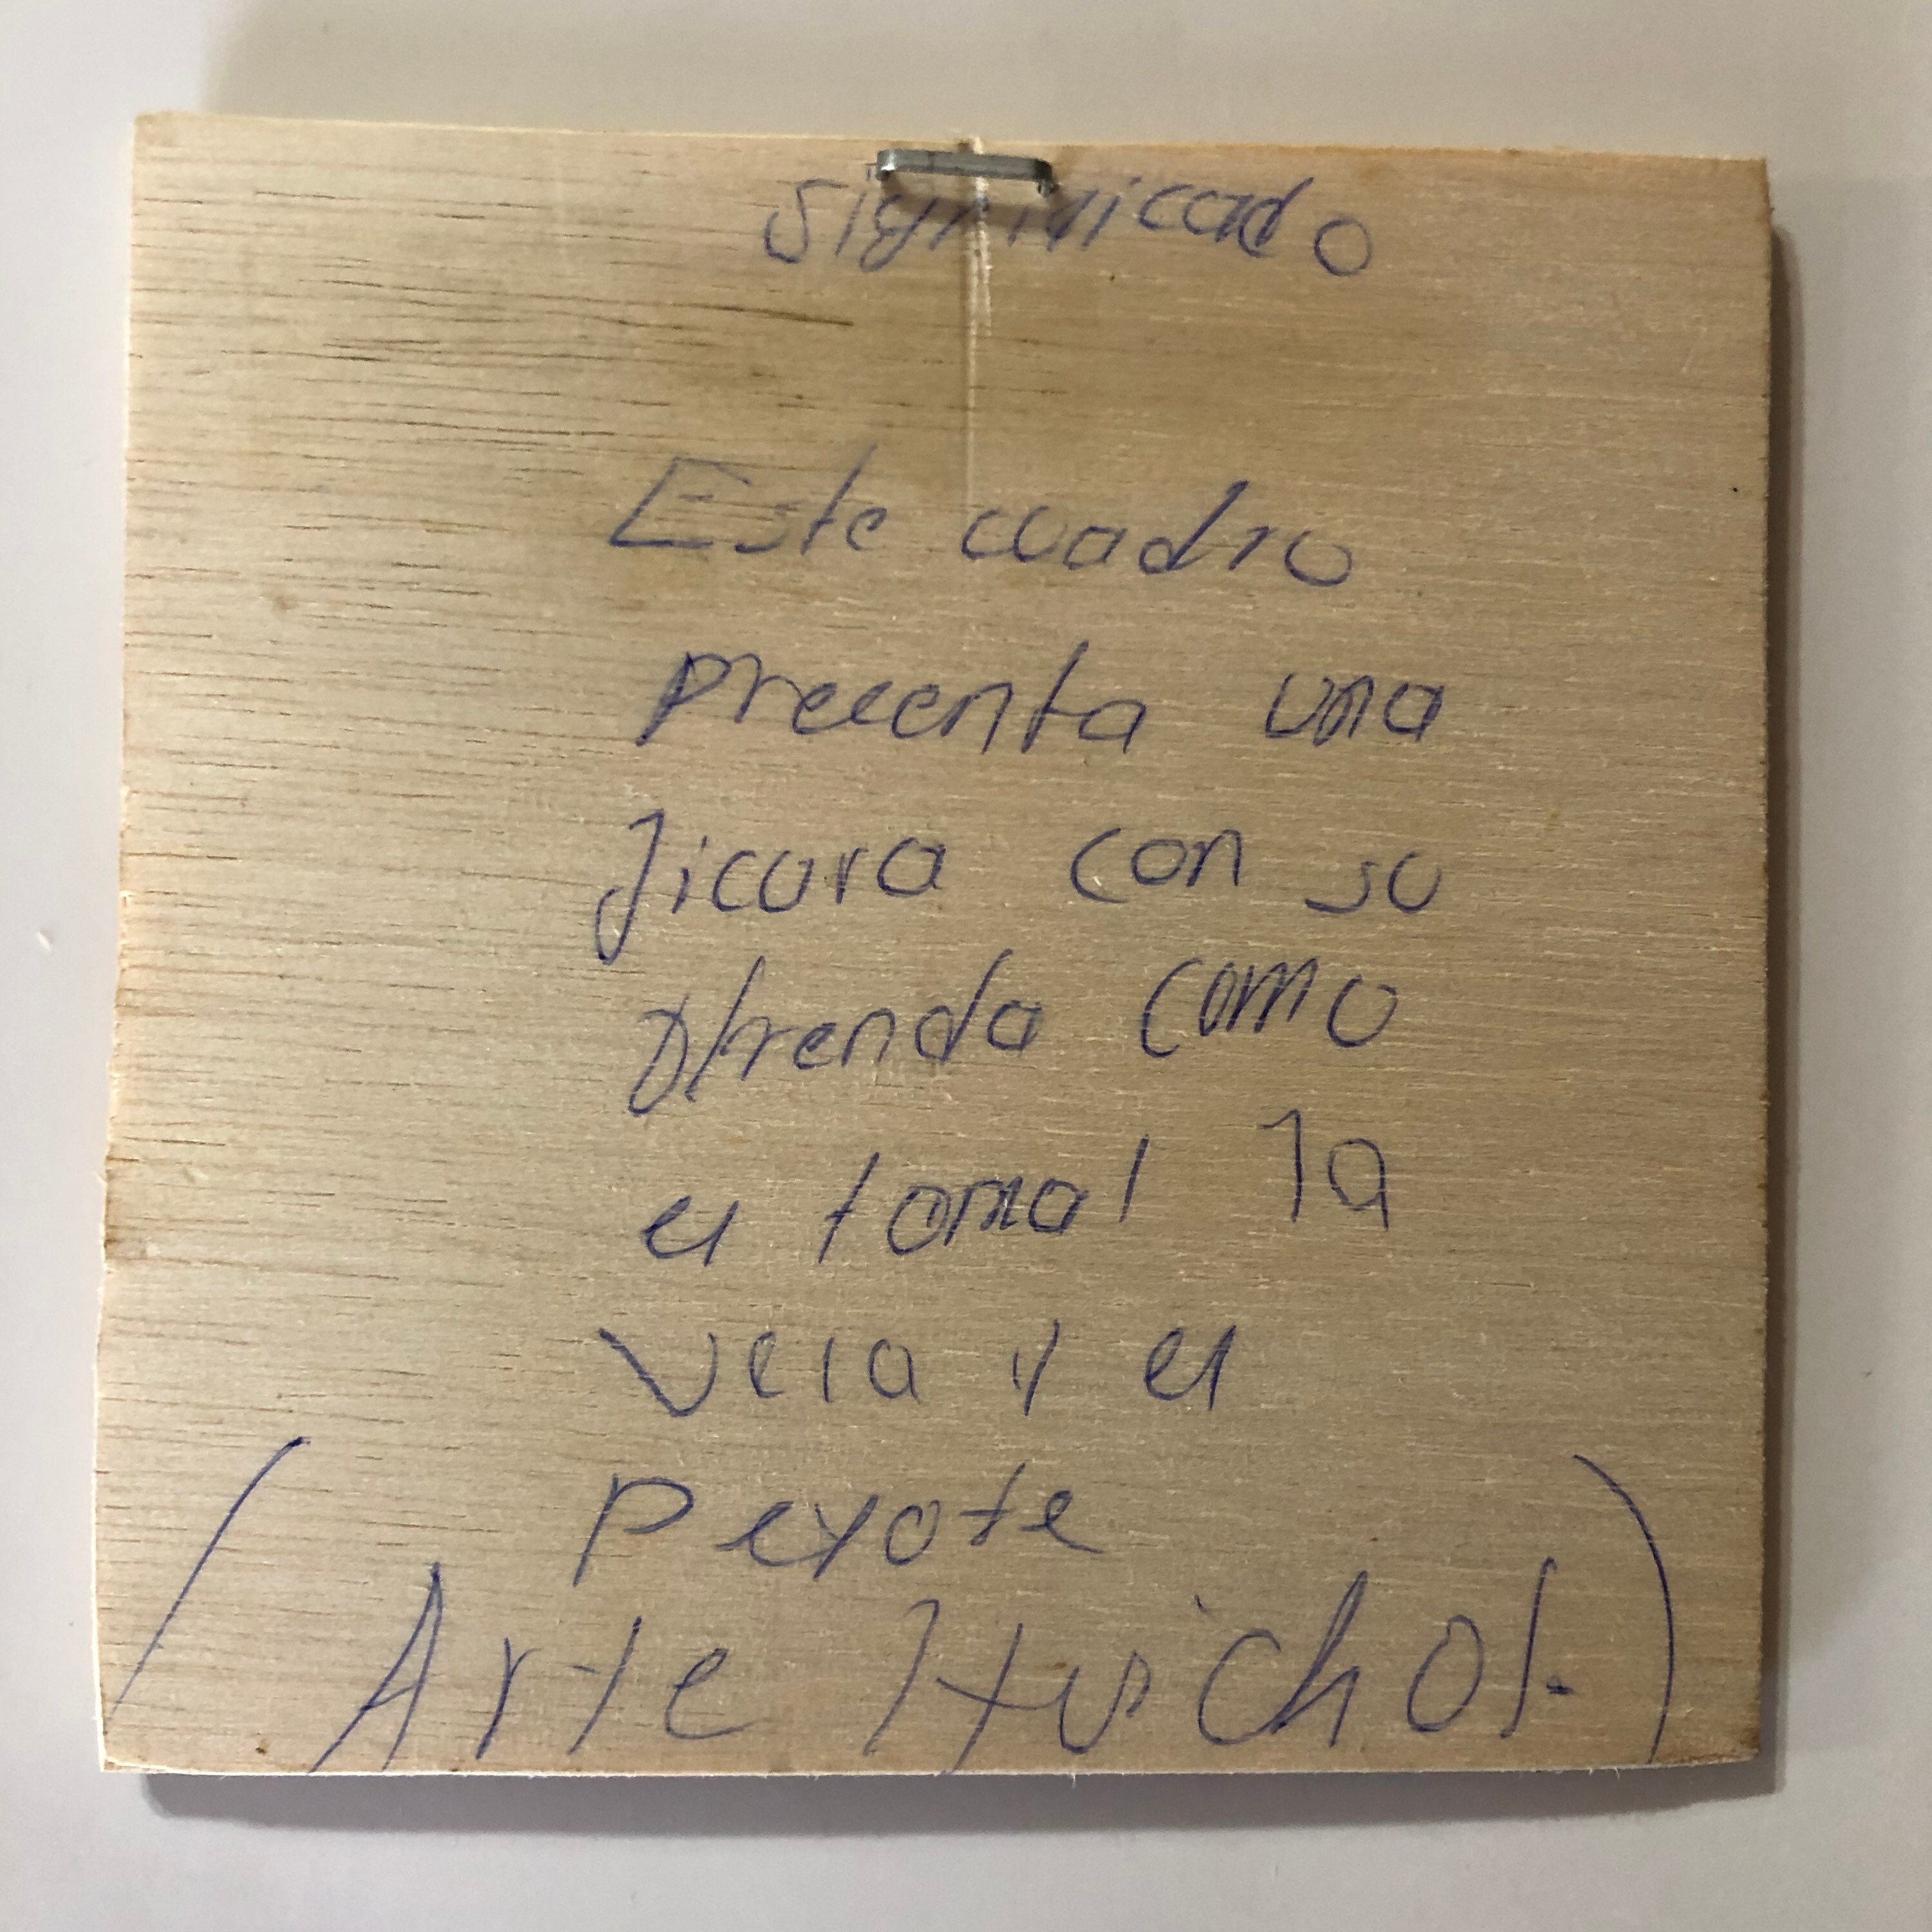 significado
Este cuadro
precenta una
Jicara con su
ofrenda como
el tamal la
vela y el
peyote
(Arte Huichol.)